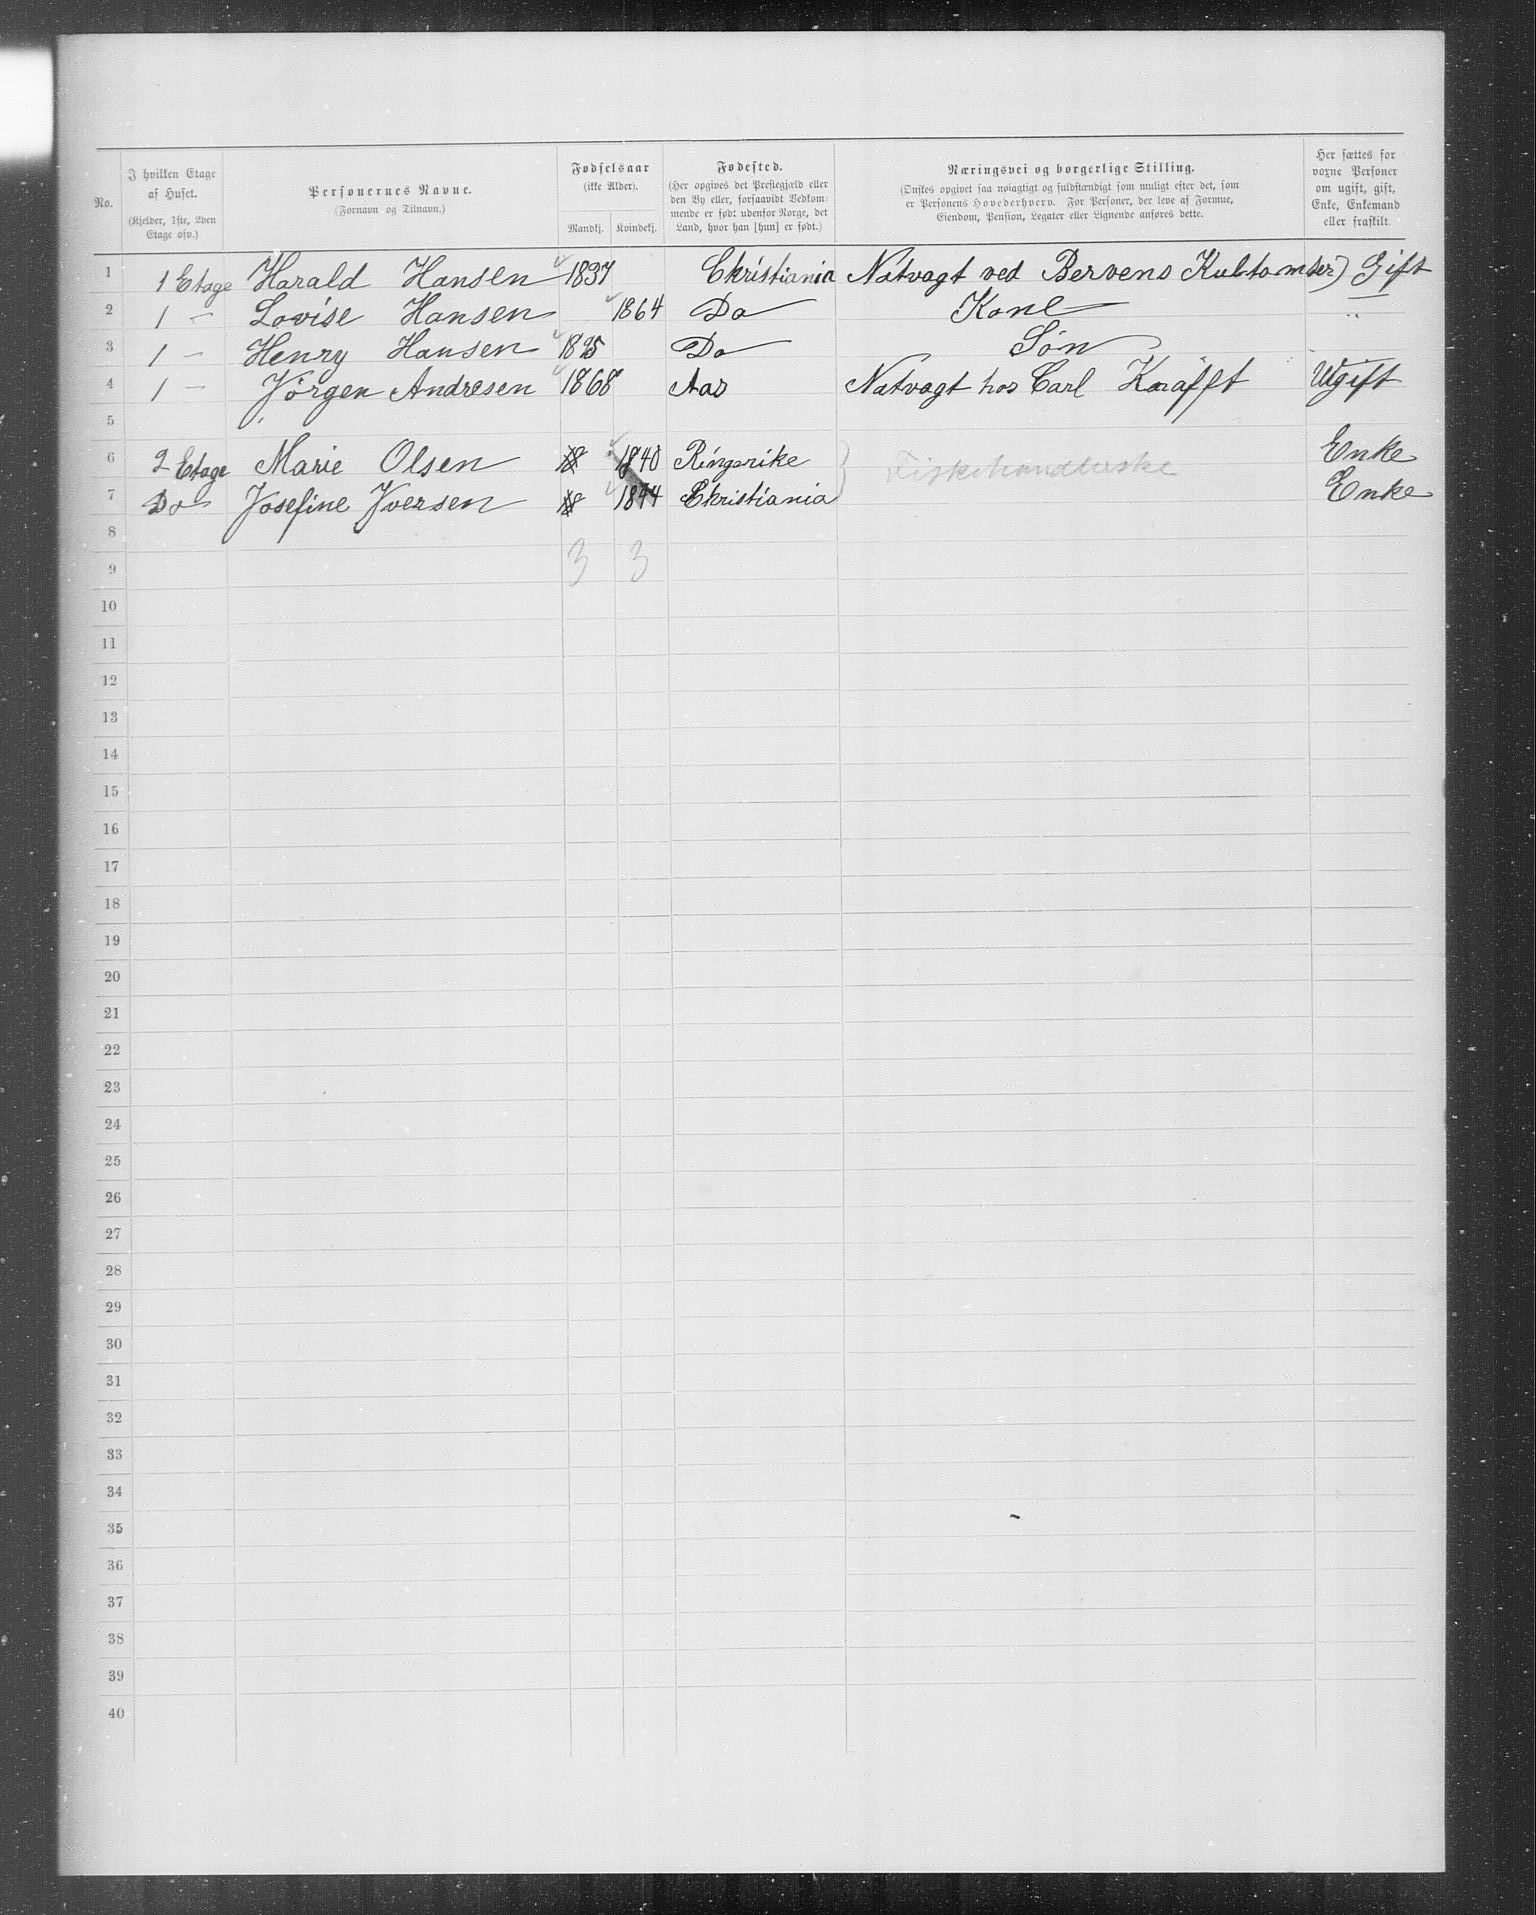 No. | I hvilken Etage af Huset. (Kjelder, 1ste, 2den Etage osv.) | Personernes Navne. (Fornavn og Tilnavn.) | Fødselsaar (ikke Alder). Mandkj. | Kvindekj. | Fødested. (Her opgives det Præstegjæld eller den By eller, forsaavidt Vedkommende er født udenfor Norge, det Land, hvor han [hun] er født.) | Næringsvei og borgerlige Stilling. (Ønskes opgivet saa nøiagtigt og fuldstændigt som muligt efter det, som er Personens Hovederhverv. For Personer, der leve af Formue, Eiendom, Pension, Legater eller Lignende anføres dette. | Her sættes for voxne Personer om ugift, gift, Enke, Enkemand eller fraskilt.
1 | 1 Etage | Harald Hansen | 1837 | | Christiania | Natvagt ved Bervens Kultomter) | Gift
2 | 1 — | Lovise Hansen | | 1864 | Do | Kone | — „
3 | 1 — | Henry Hansen | 1895 | | Do | Søn
4 | 1 — | Jörgen Andresen | 1868 | | Aas | Natvagt hos Carl Krafft | Ugift
5
6 | 2 Etage | Marie Olsen | 18 | 1840 | Ringerike | Fiskehandlerske | Enke
7 | Do | Josefine Iversen | 18 | 1844 | Christiania | | Enke
8
9 | | | 3 | 3
10
11
12
13
14
15
16
17
18
19
20
21
22
23
24
25
26
27
28
29
30
31
32
33
34
35
36
37
38
39
40